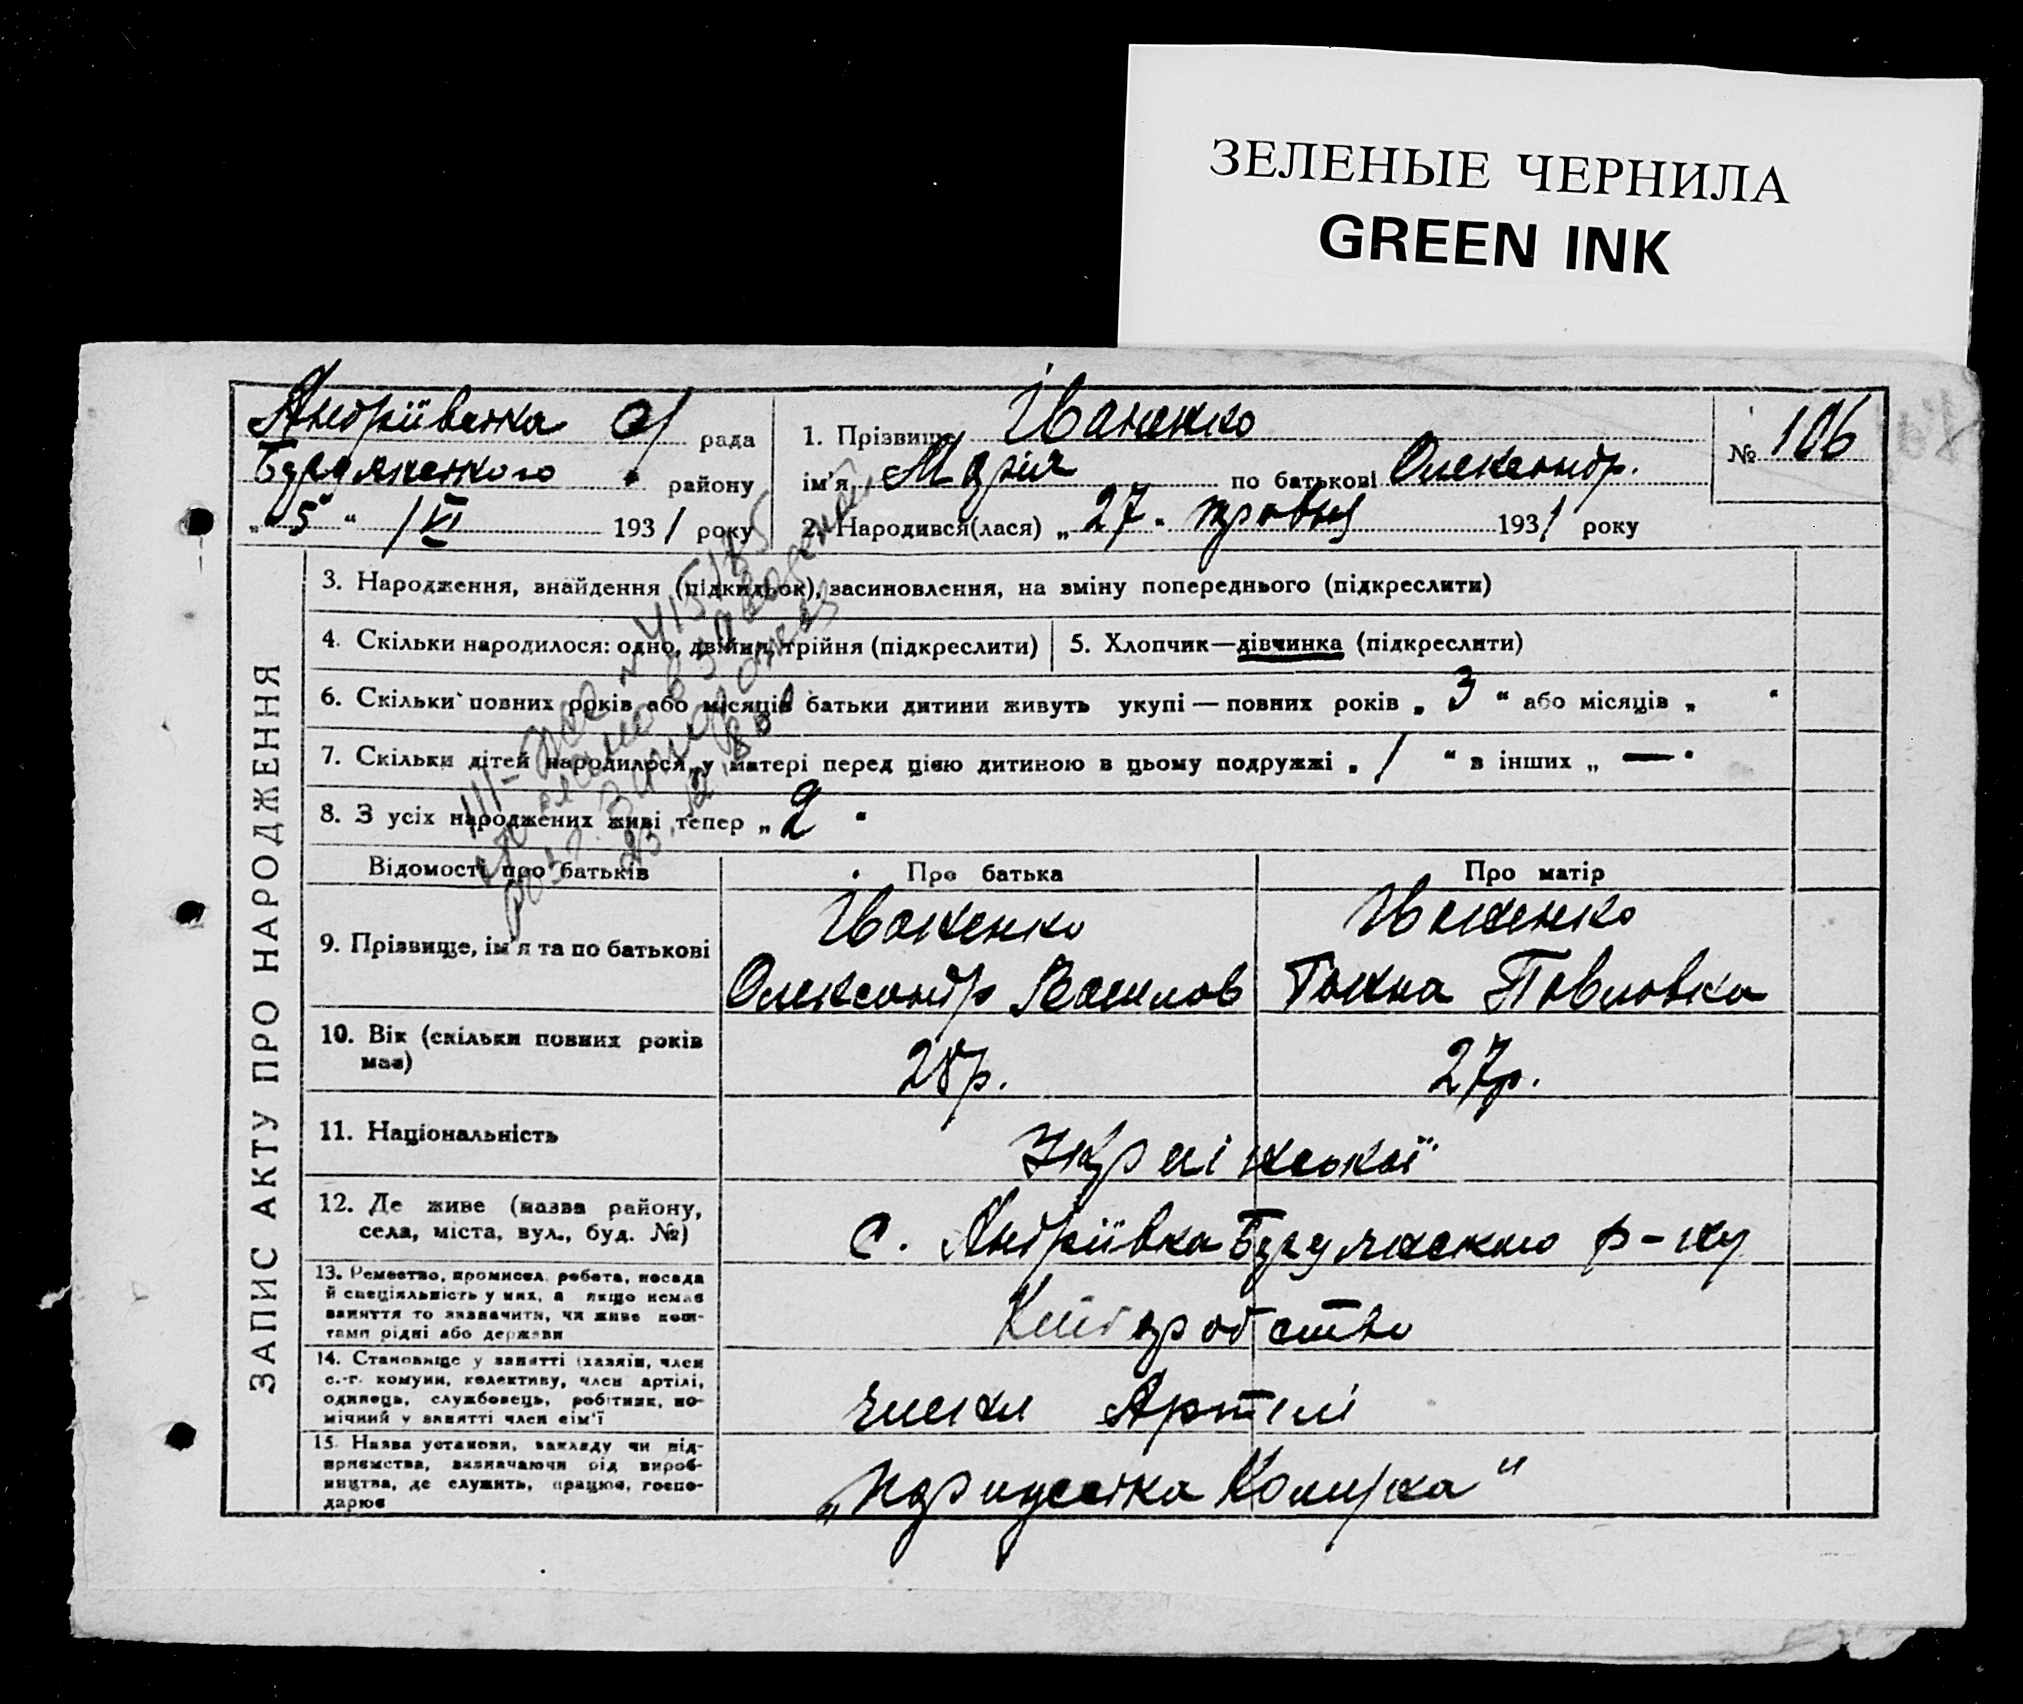 ЗЕЛЕНЫЕ ЧЕРНИЛА
GREEN INK
Андріївська с/ рада
району
„5“ /VI 1931 року
1. Прізвище Іваненко
ім'я Марія по батькові Олександр.
2. Народився(лася) „27“ травня 1931 року
№ 106
ЗАПИС АКТУ ПРО НАРОДЖЕННЯ
3. Народження, знайдення (підкидьок), засиновлення, на зміну попереднього (підкреслити)
4. Скільки народилося: одно, двійня, трійня (підкреслити)
5. Хлопчик—дівчинка (підкреслити)
6. Скільки повних років або місяців батьки дитини живуть укупі — повних років „3“ або місяців „ “
7. Скільки дітей народилося у матері перед цією дитиною в цьому подружжі „1“ в інших „—“
8. З усіх народжених живі тепер „2“
Відомості про батьків
Про батька
Про матір
9. Прізвище, ім'я та по батькові
Іваненко
Олександр Василов
Іваненко
Ганна Павловна
10. Вік (скільки повних років
має)
28р.
27р.
11. Національність
Української
12. Де живе (назва району,
села, міста, вул., буд. №)
с. Андріївка р-ну
13. Ремество, промисел, робота, посада
й спеціяльність у них, а якщо немає
заняття то зазначити, чи живе кош-
тами рідні або держави
Хліборобство
14. Становище у занятті (хазяїн, член
с.-г. комуни, колективу, член артілі,
одинець, службовець, робітник, по-
мічний у занятті член сім'ї
член Артілі
15. Назва установи, закладу чи під-
приємства, визначаючи рід вироб-
ництва, де служить, працює, госпо-
дарює
„Паризська Комуна“